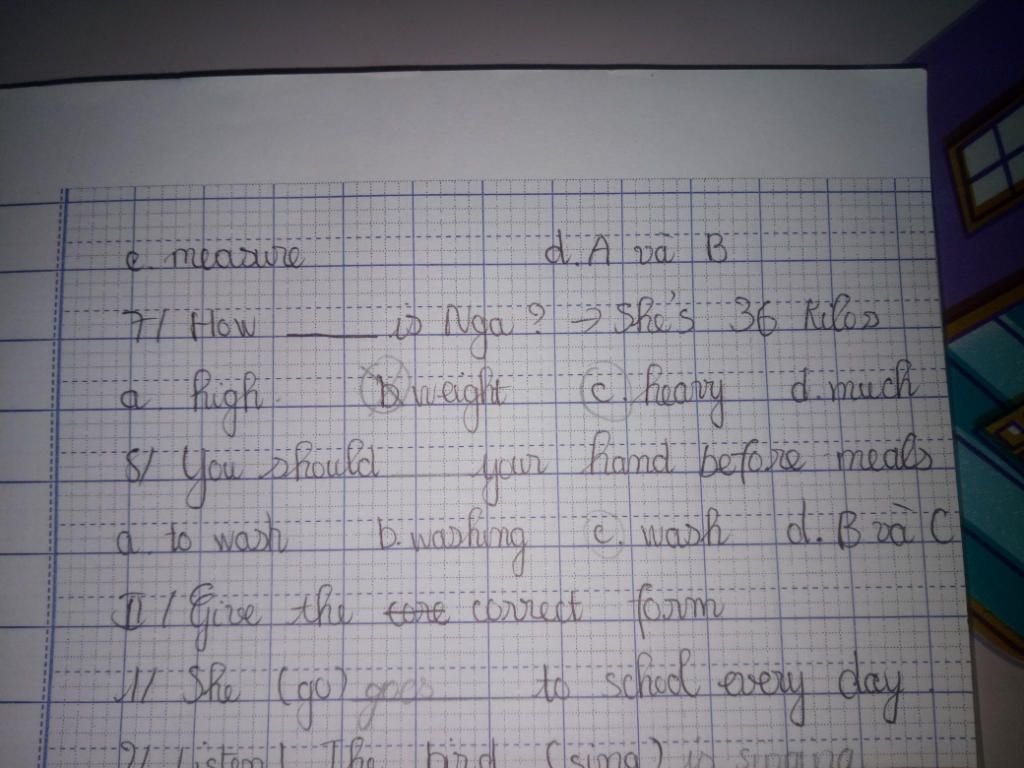 c. measure d. A và B
7/ How ____ is Nga? → She's 36 kilos
a. high b. weight c. heavy d. much
8/ You should your hand before meals
a. to wash b. washing c. wash d. B và C
II/ Give the core correct form
1/ She (go) goes to school every day
2/ Listen! The bird (sing) is singing